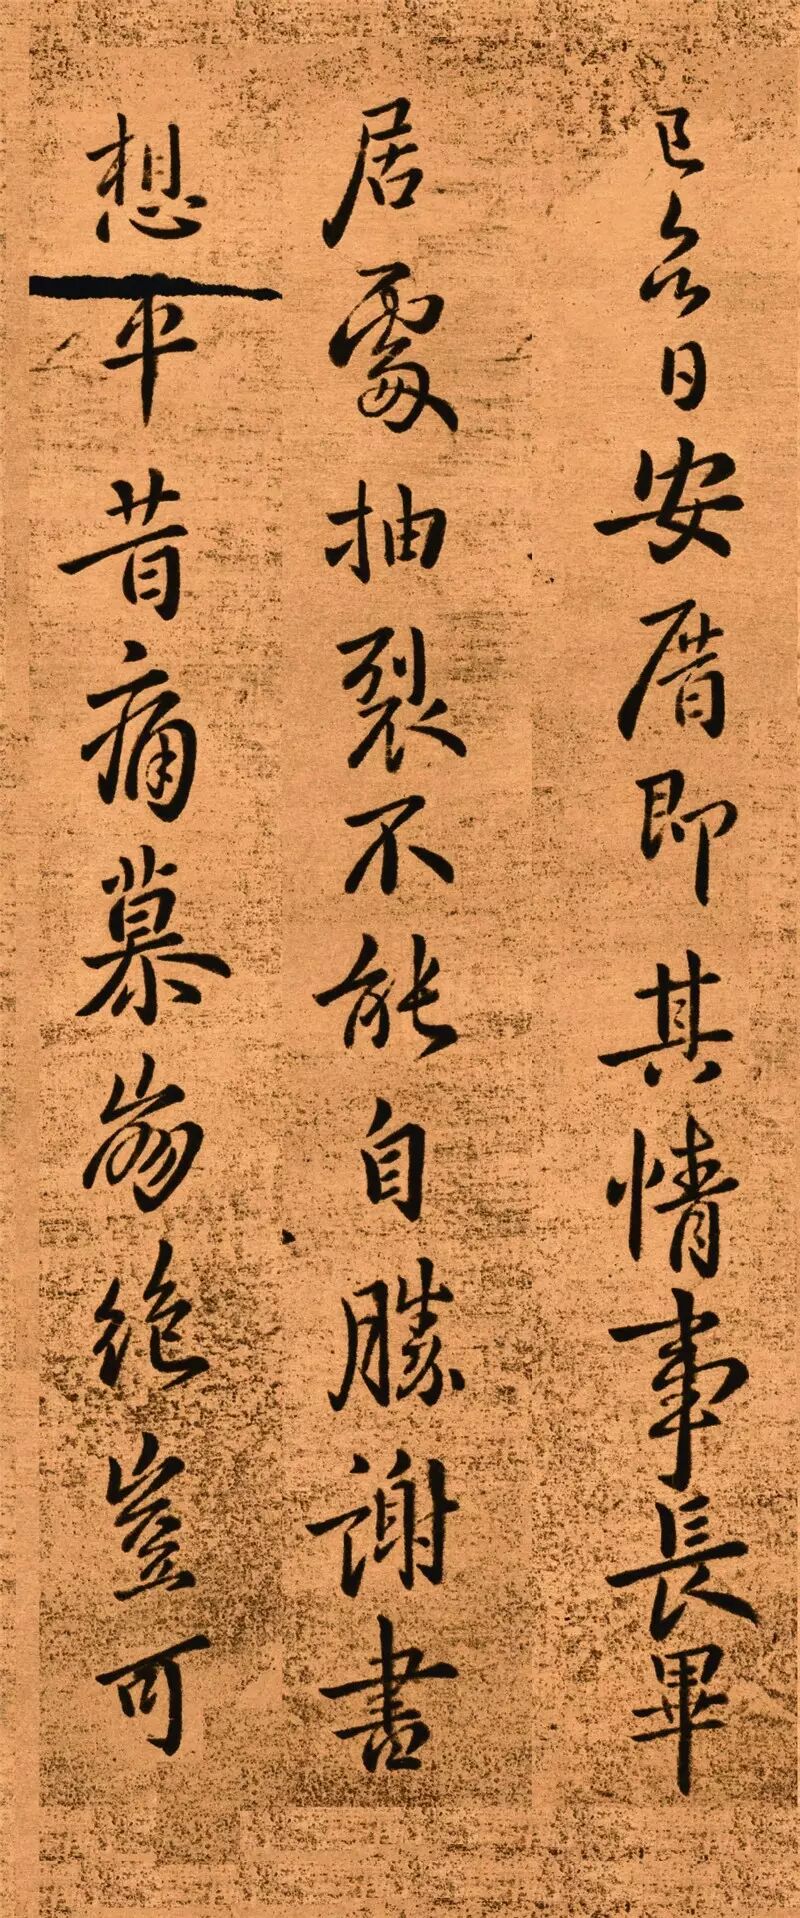 已冬日安厝即其情事長畢
居處抽裂不能自勝謝書
想平昔痛慕崩絶豈可